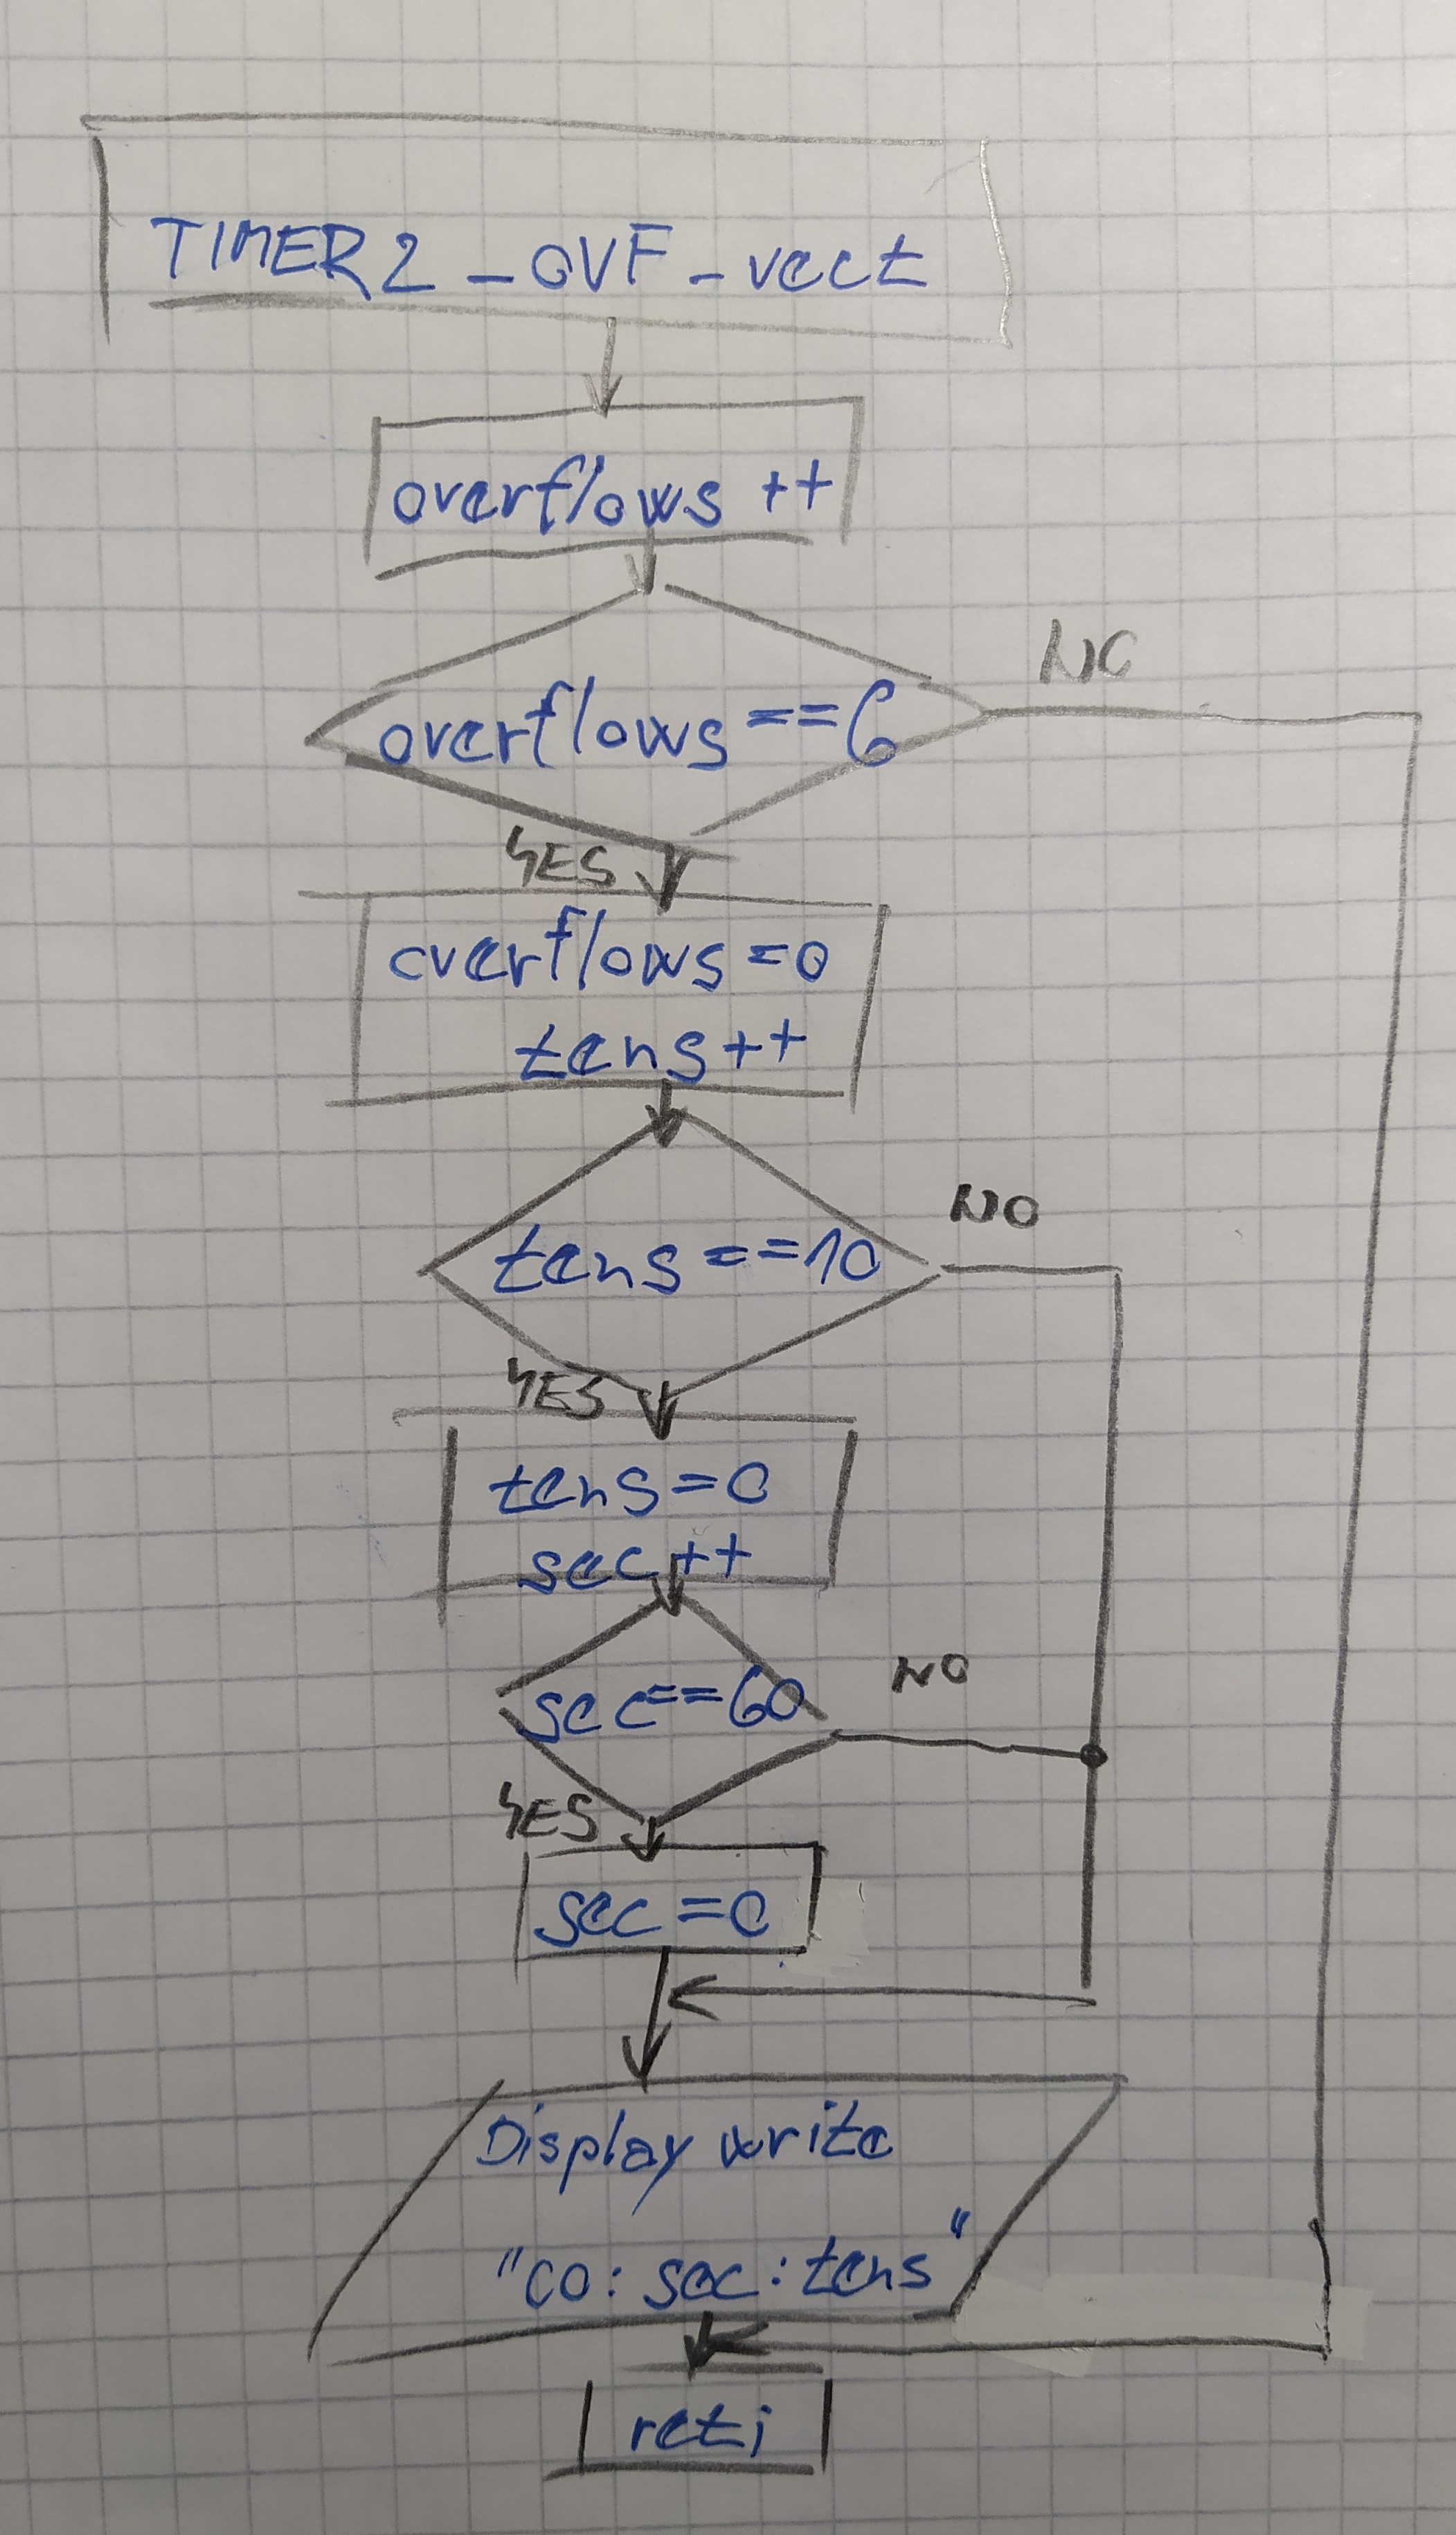 TIMER2_OVF_vect
overflows ++
overflows ==6
NO
YES
overflows =0
tens++
tens==10
NO
YES
tens=0
sec++
sec==60
NO
YES
sec=0
Display write
"00: sec: tens"
reti